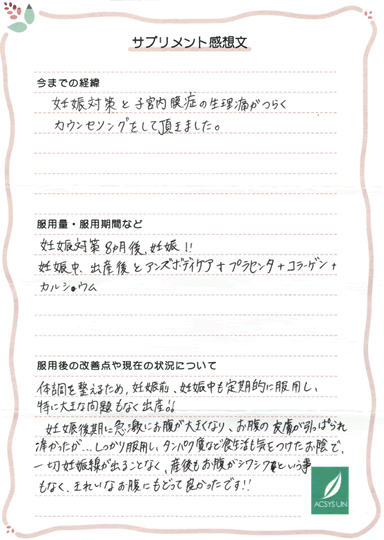 サプリメント感想文
今までの経緯
妊娠対策と子宮内膜症の生理痛がつらく
カウンセリングをして頂きました。
服用量・服用期間など
妊娠対策 8ヵ月後、妊娠!!
妊娠中、出産後とアンズボディケア+プラセンタ+コラーゲン+
カルシウム
服用後の改善点や現在の状況について
体調を整えるため、妊娠前、妊娠中も定期的に服用し、
特に大きな問題もなく出産!!
妊娠後期に急激にお腹が大きくなり、お腹の皮膚が引っぱられ
痛かったが…しっかり服用し、タンパク質など食生活も気をつけたお陰で、
一切妊娠線が出ることなく、産後もお腹がシワシワという事
もなく、きれいなお腹にもどって良かったです!!
ACSYSUN